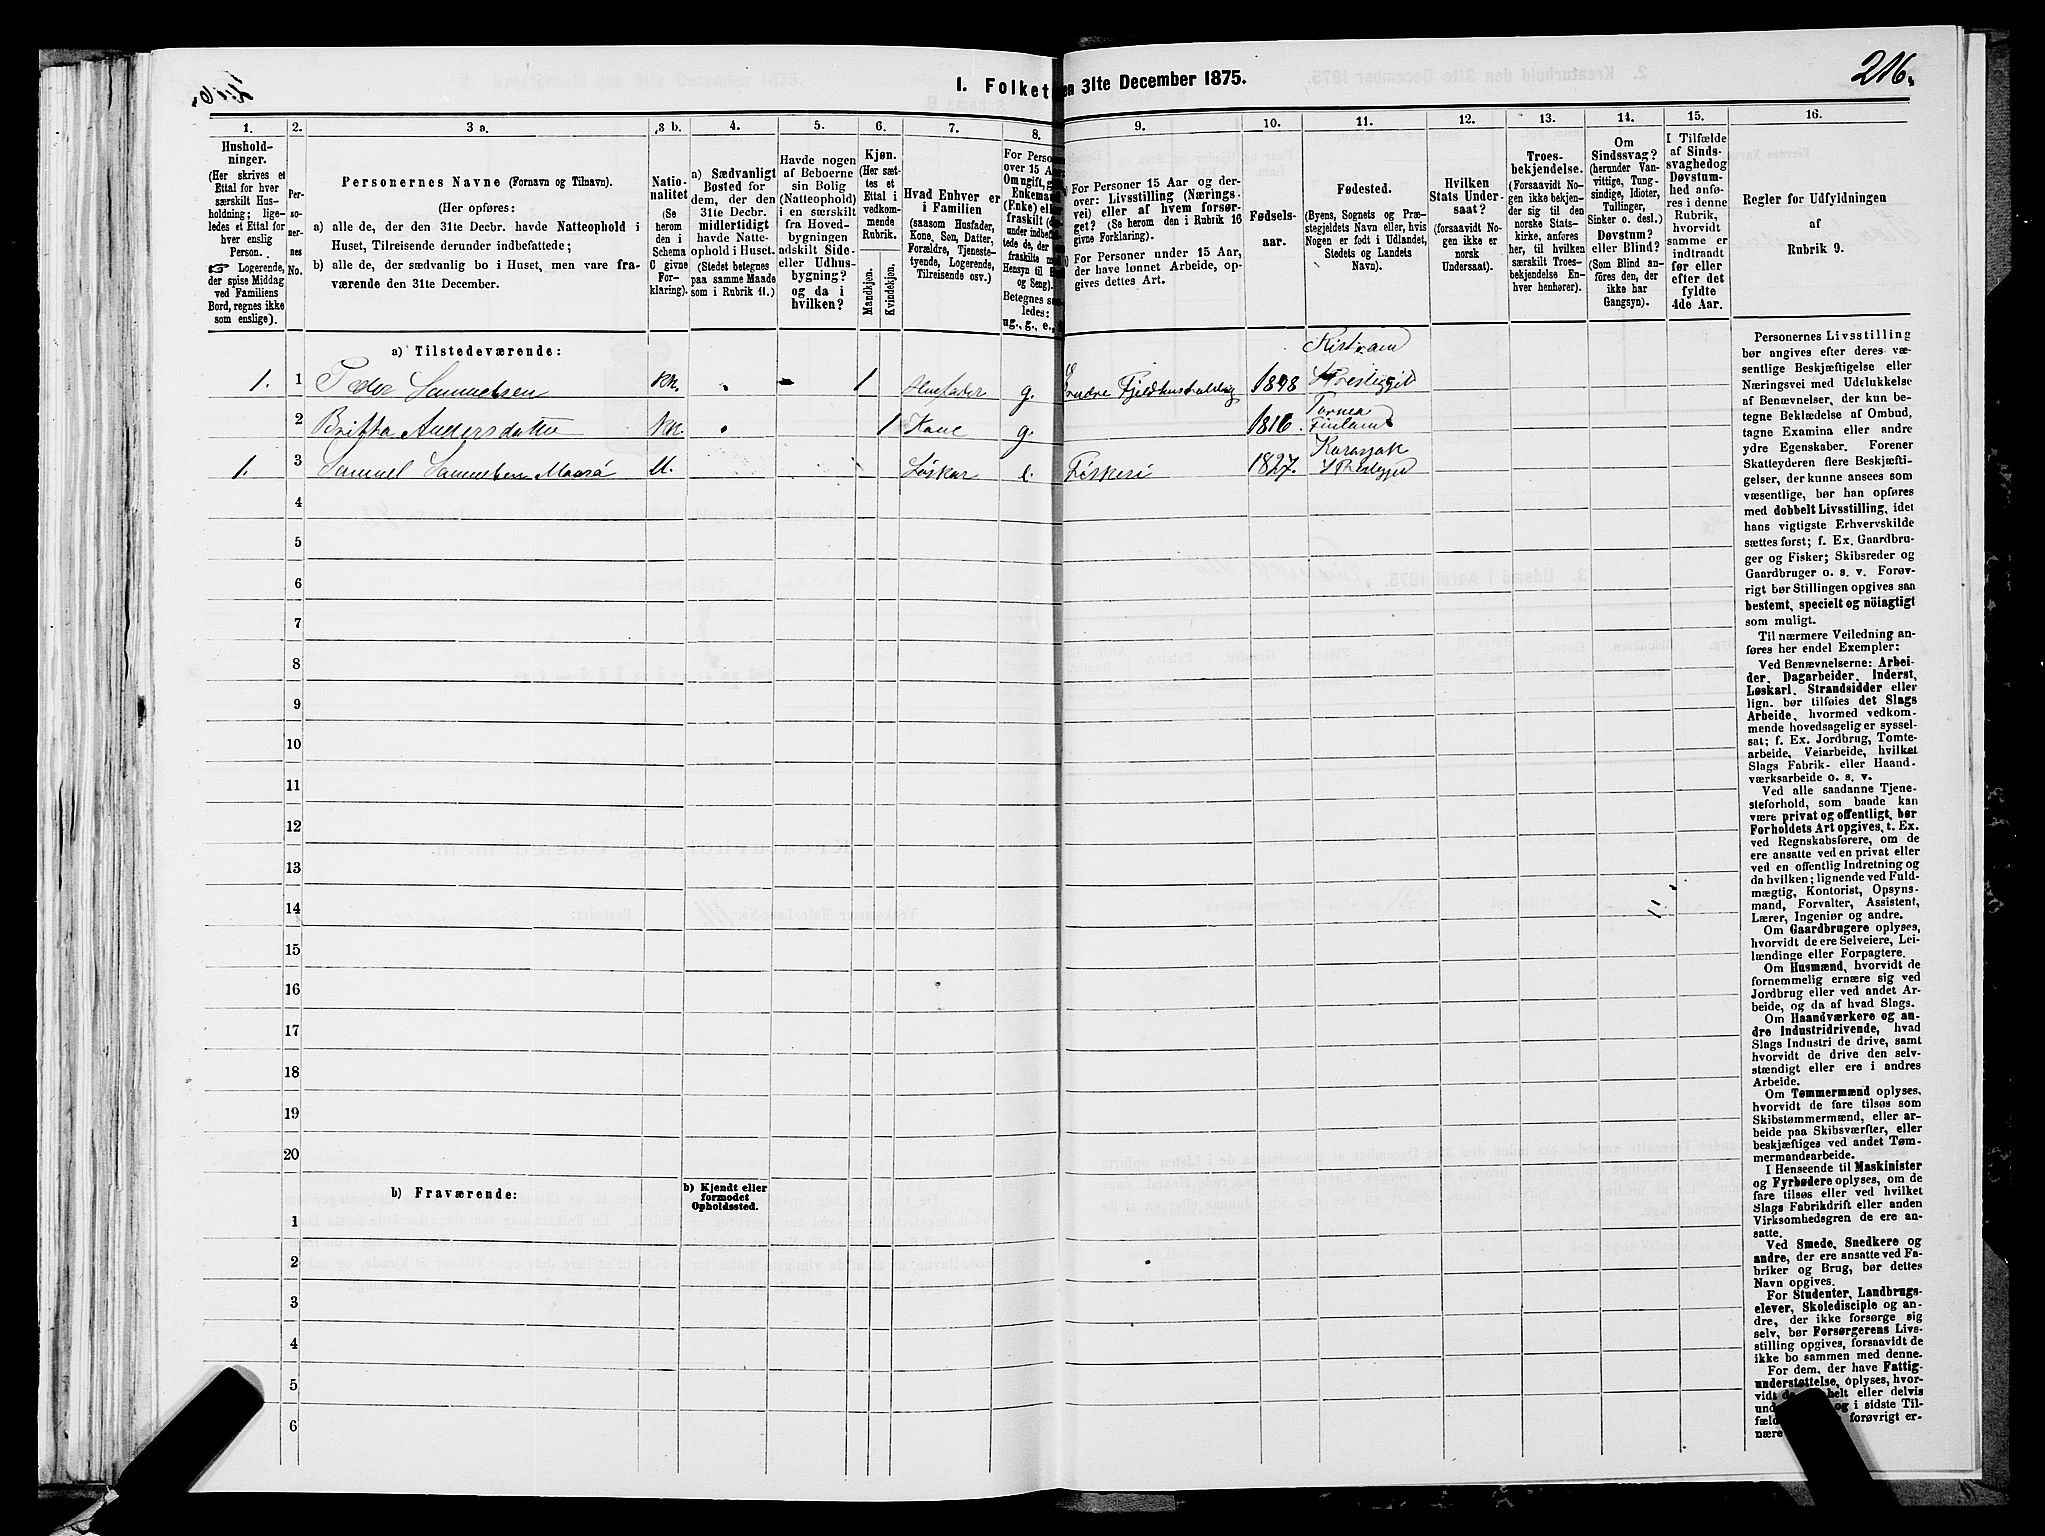 216.
1. Folket en 3lte December 1875.
1.
2.
3 a.
3 b.
4.
5.
6.
7.
8.
9.
10.
11.
12.
13.
14.
15.
16.
Hushold-
ninger.
(Her skrives et
Ettal for hver
særskilt Hus-
holdning; lige-
ledes et Ettal for
hver enslig
Person.
☞ Logerende,
der spise Middag
ved Familiens
Bord, regnes ikke
som enslige).
Per-
so-
ner-
nes
No.
Personernes Navne (Fornavn og Tilnavn).
(Her opføres:
a) alle de, der den 31te Decbr. havde Natteophold i
Huset, Tilreisende derunder indbefattede;
b) alle de, der sædvanlig bo i Huset, men vare fra-
værende den 31te December.
Natio-
nalitet
(Se
herom
den i
Schema
C givne
For-
klaring).
a) Sædvanligt
Bosted for
dem, der den
31te Decbr.
midlertidigt
havde Natte-
ophold i Huset.
(Stedet betegnes
paa samme Maade
som i Rubrik 11.)
Havde nogen
af Beboerne
sin Bolig
(Natteophold)
i en særskilt
fra Hoved-
bygningen
adskilt Side-
eller Udhus-
bygning?
og da i
hvilken?
Kjøn.
(Her sæt-
tes et
Ettal i
vedkom-
mende
Rubrik.
Mandkjøn.
Kvindekjøn.
Hvad Enhver er
i Familien
(saasom Husfader,
Kone, Søn, Datter,
Forældre, Tjeneste-
tyende, Logerende,
Tilreisende osv.)
For Person
over 15 Aar
Om ugift, g
Enkema
(Enke) elle
fraskilt (
under indb
tede de, der
fraskilte m
Hensyn til B
og Seng).
Betegnes s
ledes:
ug., g., e.,
For Personer 15 Aar og der-
over: Livsstilling (Nærings-
vei) eller af hvem forsør-
get? (Se herom den i Rubrik 16
givne Forklaring).
For Personer under 15 Aar,
der have lønnet Arbeide, op-
gives dettes Art.
Fødsels-
aar.
Fødested.
(Byens, Sognets og Præ-
stegjeldets Navn eller, hvis
Nogen er født i Udlandet,
Stedets og Landets
Navn).
Hvilken
Stats Under-
saat?
(forsaavidt No-
gen ikke er
norsk
Undersaat).
Troes-
bekjendelse.
(Forsaavidt No-
gen ikke bekjen-
der sig til den
norske Stats-
kirke, anføres
her, til hvilken
særskilt Troes-
bekjendelse En-
hver henhører).
Om
Sindssvag?
(herunder Van-
vittige, Tung-
sindige, Idioter,
Tullinger,
Sinker o. desl.)
Døvstum?
eller Blind?
(Som Blind an-
føres den, der
ikke har
Gangsyn).
I Tilfælde
af Sinds-
svaghed og
Døvstum-
hed anfø-
res i denne
Rubrik,
hvorvidt
samme er
indtraadt
før eller
efter det
fyldte
4de Aar.
Regler for Udfyldningen
af
Rubrik 9.
a) Tilstedeværende:
1. 1 Peder Samuelsen 1 Husfader g. 1848
2 Britha Andersdatter 1 Kone g. 1816. Tornea
Finland
1. 3 Samuel Samuelsen 1827. Karasjok
4
5
6
7
8
9
10
11
12
13
14
15
16
17
18
19
20
b) Fraværende:
b) Kjendt eller
formodet
Opholdssted.
1
2
3
4
5
6
Personernes Livsstilling
bør angives efter deres væ-
sentlige Beskjæftigelse eller
Næringsvei med Udelukkelse
af Benævnelser, der kun be-
tegne Beklædelse af Ombud,
tagne Examina eller andre
ydre Egenskaber. Forener
Skatteyderen flere Beskjæfti-
gelser, der kunne ansees som
væsentlige, bør han opføres
med dobbelt Livsstilling, idet
hans vigtigste Erhvervskilde
sættes først; f. Ex. Gaardbru-
ger og Fisker; Skibsreder og
Gaardbruger o. s. v. Forøv-
rigt bør Stillingen opgives saa
bestemt, specielt og nöiagtigt
som muligt.
Til nærmere Veiledning an-
føres her endel Exempler:
Ved Benævnelserne: Arbei-
der, Dagarbeider, Inderst,
Løskarl, Strandsidder eller
lign. bør tilføies det Slags
Arbeide, hvormed vedkom-
mende hovedsagelig er syssel-
sat; f. Ex. Jordbrug, Tomte-
arbeide, Veiarbeide, hvilket
Slags Fabrik- eller Haand-
værksarbeide o. s. v.
Ved alle saadanne Tjene-
steforhold, som baade kan
være privat og offentligt, bør
Forholdets Art opgives, t. Ex.
ved Regnskabsførere, om de
ere ansatte ved en privat eller
ved en offentlig Indretning og
da hvilken; lignende ved Fuld-
mægtig, Kontorist, Opsyns-
mand, Forvalter, Assistent,
Lærer, Ingeniør og andre.
Om Gaardbrugere oplyses,
hvorvidt de ere Selveiere, Lei-
lændinge eller Forpagtere.
Om Husmænd, hvorvidt de
fornemmelig ernære sig ved
Jordbrug eller ved andet Ar-
beide, og da af hvad Slags.
Om Haandværkere og an-
dre Industridrivende, hvad
Slags Industri de drive, samt
hvorvidt de drive den selv-
stændigt eller ere i andres
Arbeide.
Om Tømmermænd oplyses,
hvorvidt de fare tilsøs som
Skibstømmermænd, eller ar-
beide paa Skibsværfter, eller
beskjæftiges ved andet Tøm-
mermandsarbeide.
I Henseende til Maskinister
og Fyrbødere oplyses, om de
fare tilsøs eller ved hvilket
Slags Fabrikdrift eller anden
Virksomhedsgren de ere an-
satte.
Ved Smede, Snedkere og
andre, der ere ansatte ved Fa-
briker og Brug, bør dettes
Navn opgives.
For Studenter, Landbrugs-
elever, Skoledisciple og an-
dre, der ikke forsørge sig
selv, bør Forsørgerens Livs-
stilling opgives, forsaavidt de
ikke bo sammen med denne.
For dem, der have Fattig-
understøttelse, oplyses, hvor-
vidt de helt eller delvis
und og i sidste Til-
fæld forøvrigt er-
nære